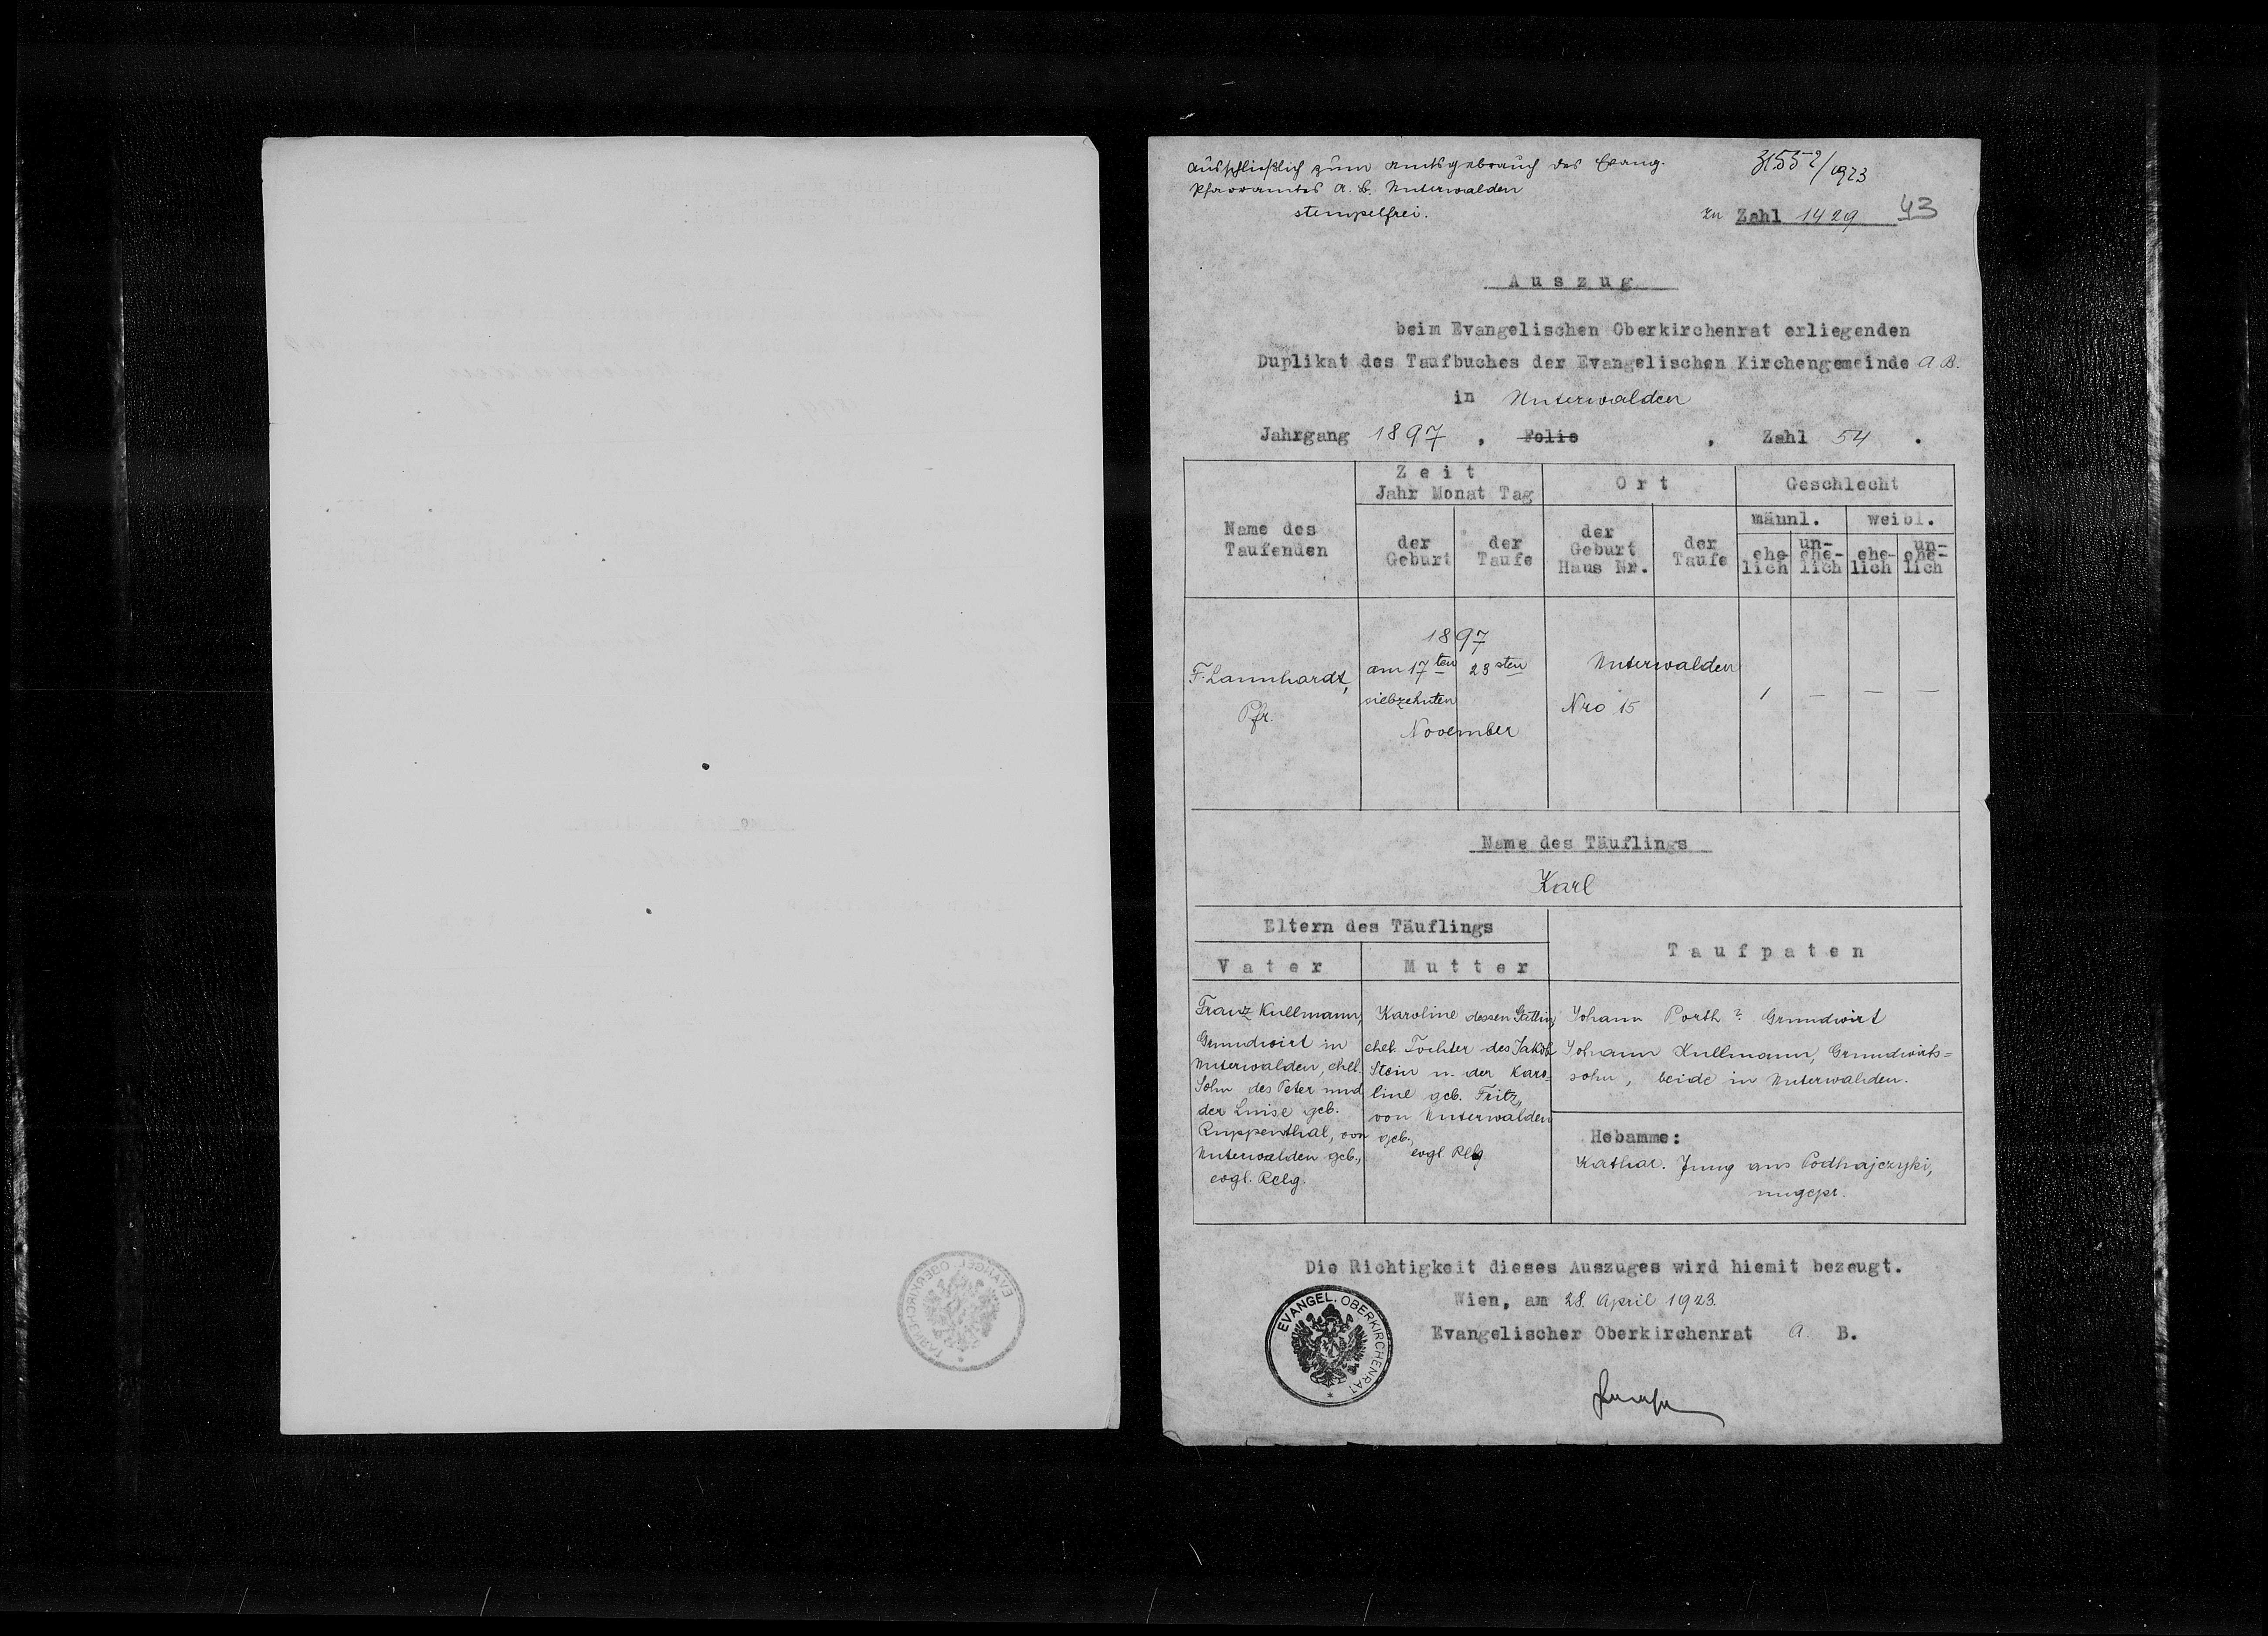 Ausschließlich zum Amtsgebrauch des Evang.
Pfarramtes A. B. Unterwalden
stempelfrei.
/1923
zu Zahl 1429 43
Auszug
beim Evangelischen Oberkirchenrat erliegenden
Duplikat des Taufbuches der Evangelischen Kirchengemeinde A. B.
in Unterwalden
Jahrgang 1897 , Folio , Zahl 54 .
Name des
Taufenden
Zeit
Jahr Monat Tag
der
Geburt
der
Taufe
Ort
der
Geburt
Haus Nr.
der
Taufe
Geschlecht
männl. weibl.
ehe-
lich
un-
ehe-
lich
ehe-
lich
un-
ehe-
lich
F. Lannhardt,
Pfr.
1897
am 17ten 23sten
siebzehnten
November
Unterwalden
Nro 15
1 — — —
Name des Täuflings
Karl
Eltern des Täuflings
Vater
Mutter
Taufpaten
Franz Kullmann,
Grundwirt in
Unterwalden, ehel.
Sohn des Peter und
der Luise geb.
Ruppenthal, von
Unterwalden geb.,
evgl. Relg.
Karoline dessen Gattin,
ehel. Tochter des Jakob
Stein u. der Karo-
line geb. Fritz,
von Unterwalden
geb.,
evgl. Relg
Johann Porth ? Grundwirt
Johann Kullmann, Grundwirts=
sohn, beide in Unterwalden.
Hebamme:
Kathar. Jung aus Podhajczyki,
ungepr.
Die Richtigkeit dieses Auszuges wird hiemit bezeugt.
Wien, am 28. April 1923.
Evangelischer Oberkirchenrat A. B.
EVANGEL. OBERKIRCHENRAT *